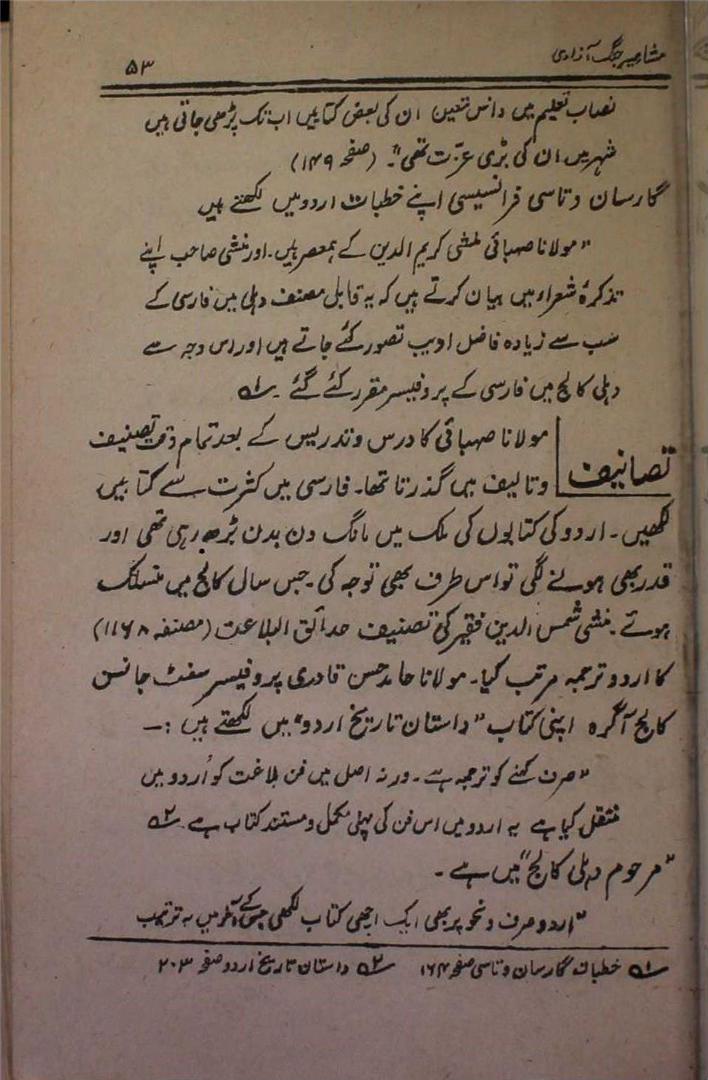 مشاہیر جنگ آزادی
۵۳
نصاب تعلیم میں داخل تھیں ان کی بعض کتابیں اب تک پڑھی جاتی ہیں
شہر میں ان کی بڑی عزت تھی"۔ (صفحہ ۱۴۹)
گارساں دتاسی فرانسیسی اپنے خطبات اردو میں لکھتے ہیں
"مولانا صہبائی منشی کریم الدین کے ہمعصر ہیں۔ اور منشی صاحب اپنے
تذکرۂ شعراء میں بیان کرتے ہیں کہ یہ قابل مصنف دہلی میں فارسی کے
سب سے زیادہ فاضل ادیب تصور کئے جاتے ہیں اور اس وجہ سے
دہلی کالج میں فارسی کے پروفیسر مقرر کئے گئے۔ ؂۱
تصانیف
مولانا صہبائی کا درس و تدریس کے بعد تمام وقت تصنیف
و تالیف میں گذرتا تھا۔ فارسی میں کثرت سے کتابیں
لکھیں۔ اردو کی کتابوں کی ملک میں مانگ دن بدن بڑھ رہی تھی اور
قدر بھی ہونے لگی تو اس طرف بھی توجہ کی۔ جس سال کالج میں منسلک
ہوئے۔ منشی شمس الدین فقیر کی تصنیف حدائق البلاغت (مصنفہ ۱۱۶۸)
کا اردو ترجمہ مرتب کیا۔ مولانا حامد حسن قادری پروفیسر سینٹ جانس
کالج آگرہ اپنی کتاب "داستان تاریخ اردو" میں لکھتے ہیں :—
"صرف کہنے کو ترجمہ ہے۔ ورنہ اصل میں فن بلاغت کو اُردو میں
منتقل کیا ہے یہ اردو میں اس فن کی پہلی مکمل و مستند کتاب ہے۔ ؂۲
"مرحوم دہلی کالج" میں ہے۔
"اردو صرف و نحو پر بھی ایک اچھی کتاب لکھی جس کے آخر میں بہ ترتیب
؂۱ خطبات گارساں دتاسی صفحہ ۱۶۴ ؂۲ داستان تاریخ اردو صفحہ ۲۰۳